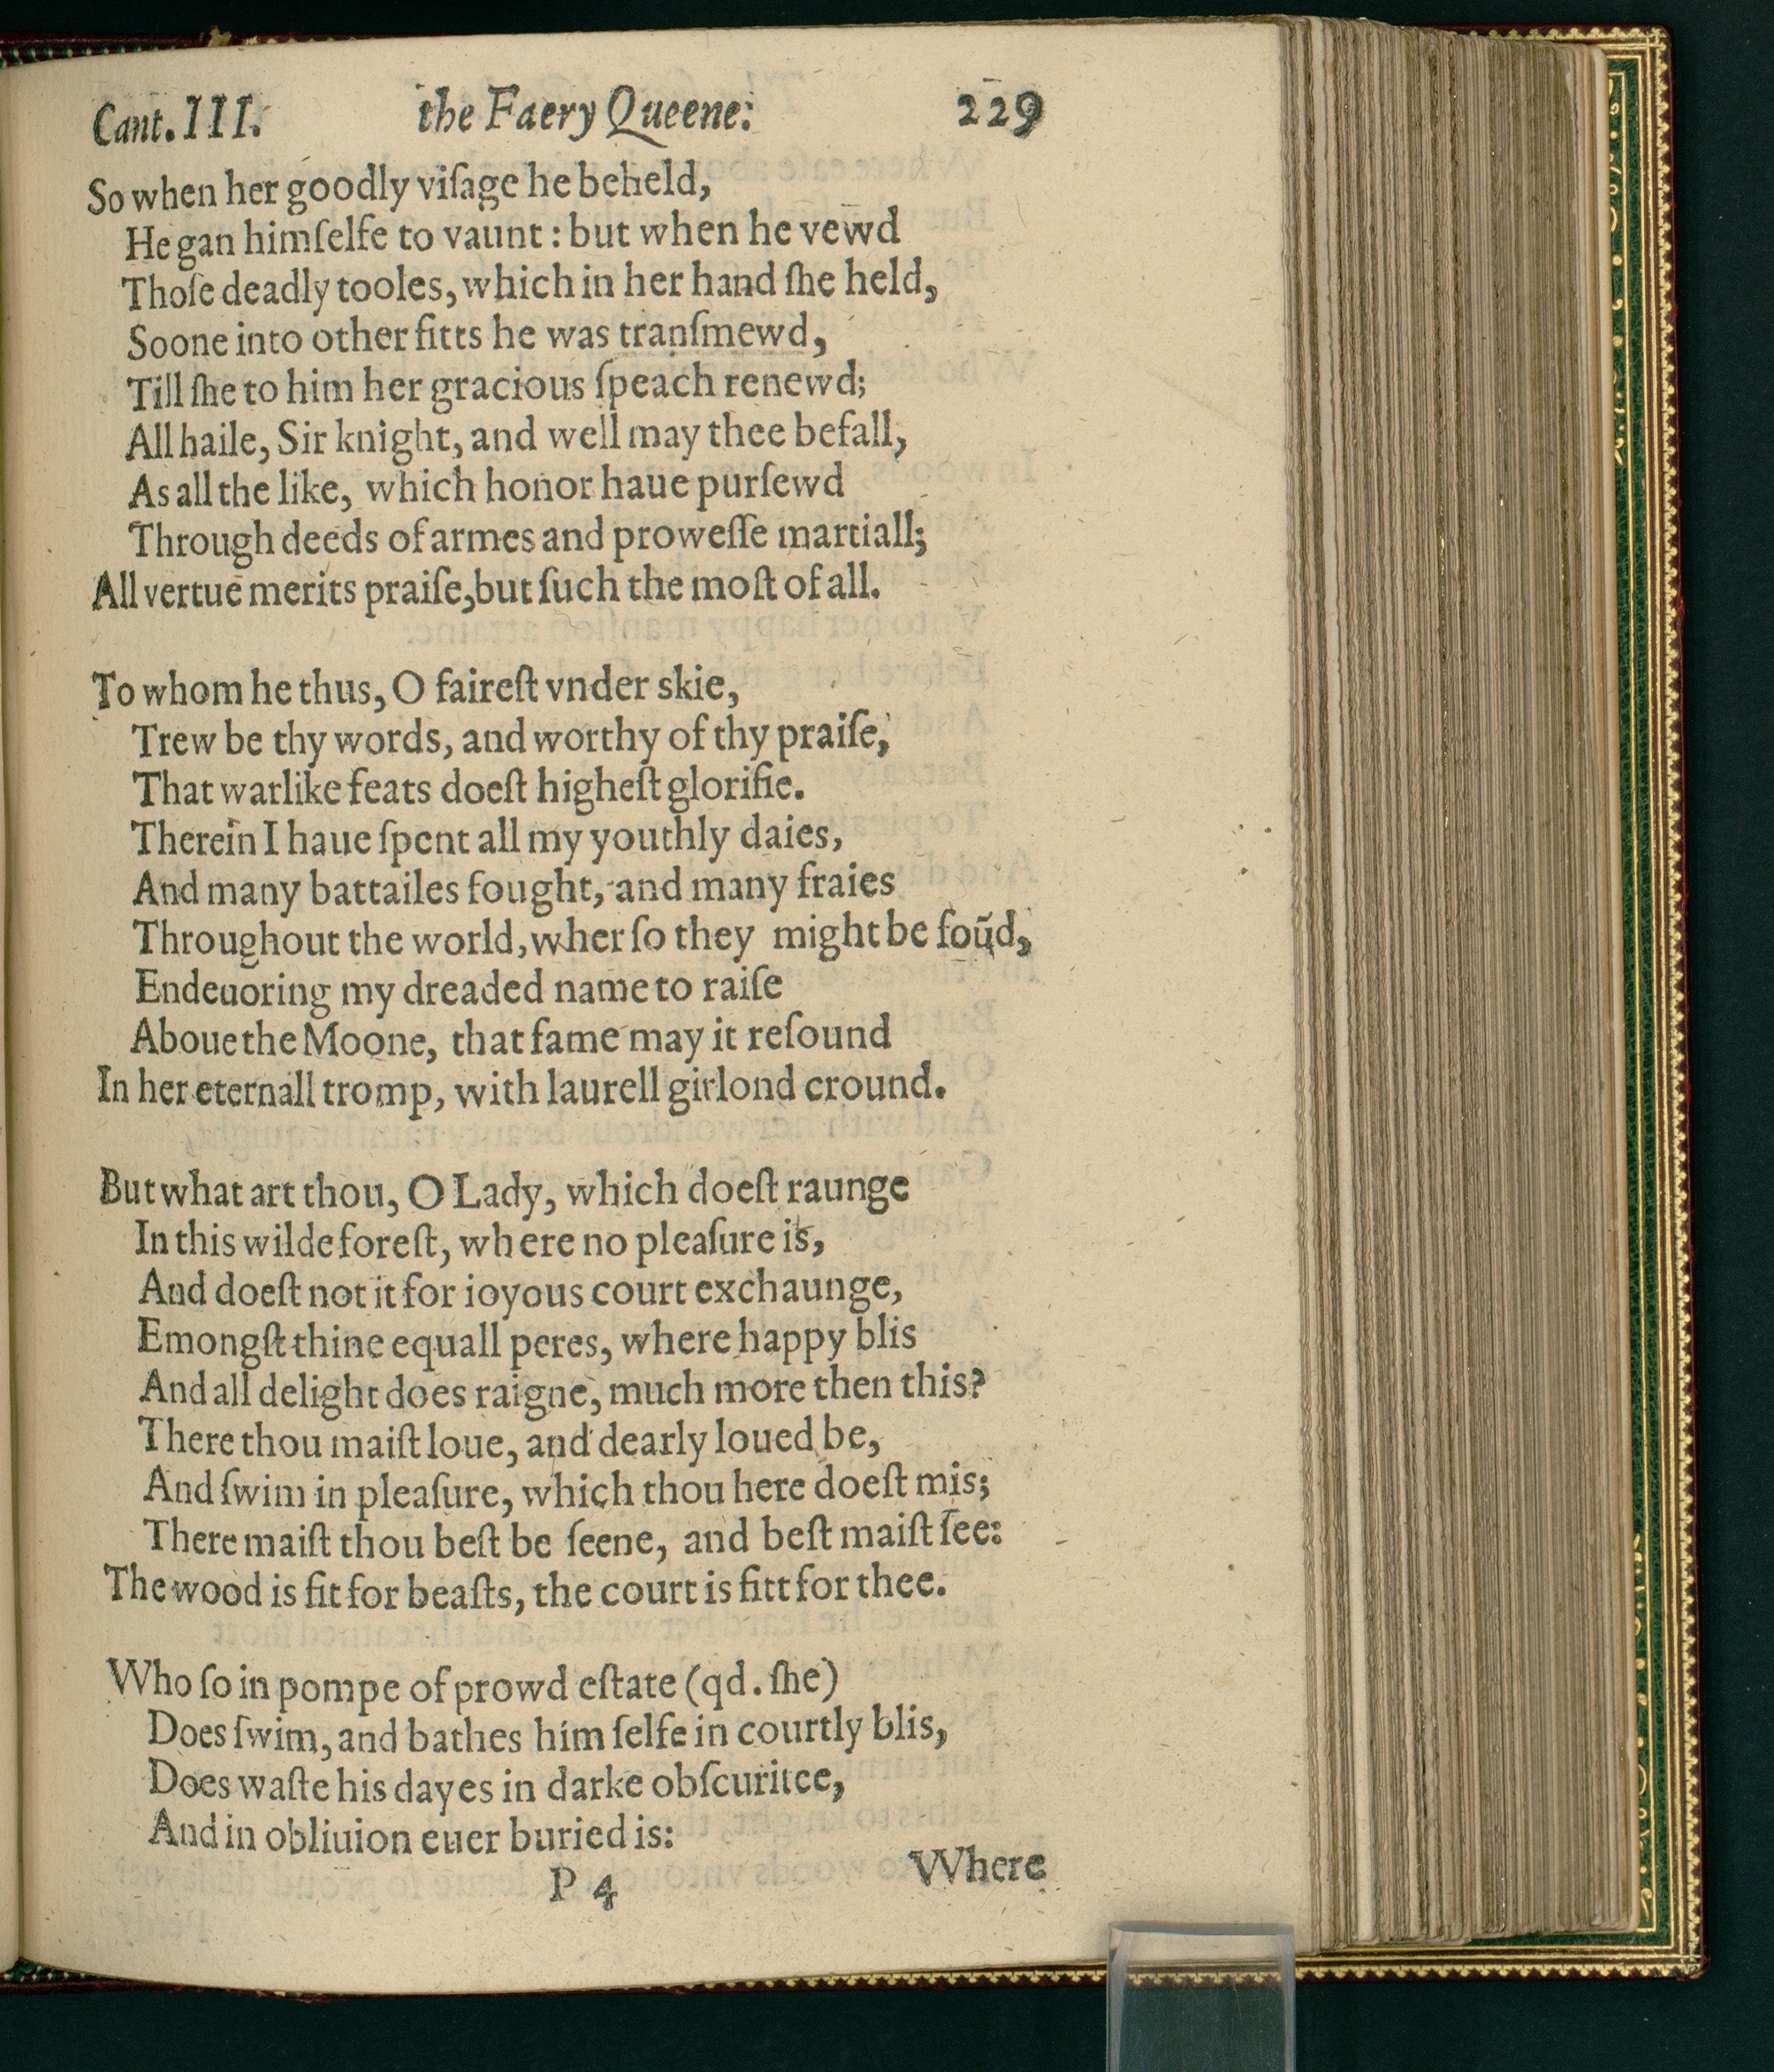 Cant. III. the Faery Queene: 229
So when her goodly viſage he beheld,
He gan himſelfe to vaunt : but when he vewd
Thoſe deadly tooles, which in her hand ſhe held,
Soone into other fitts he was tranſmewd,
Till ſhe to him her gracious ſpeach renewd;
All haile, Sir knight, and well may thee befall,
As all the like, which honor haue purſewd
Through deeds of armes and proweſſe martiall;
All vertue merits praiſe, but ſuch the moſt of all.
To whom he thus, O faireſt vnder skie,
Trew be thy words, and worthy of thy praiſe,
That warlike feats doeſt higheſt glorifie.
Therein I haue ſpent all my youthly daies,
And many battailes fought, and many fraies
Throughout the world, wher ſo they might be foũd,
Endeuoring my dreaded name to raiſe
Aboue the Moone, that fame may it reſound
In her eternall tromp, with laurell girlond cround.
But what art thou, O Lady, which doeſt raunge
In this wilde foreſt, where no pleaſure is,
And doeſt not it for ioyous court exchaunge,
Emongſt thine equall peres, where happy blis
And all delight does raigne, much more then this?
There thou maiſt loue, and dearly loued be,
And ſwim in pleaſure, which thou here doeſt mis;
There maiſt thou beſt be ſeene, and beſt maiſt ſee:
The wood is fit for beaſts, the court is fitt for thee.
Who ſo in pompe of prowd eſtate (qd. ſhe)
Does ſwim, and bathes him ſelfe in courtly blis,
Does waſte his dayes in darke obſcuritee,
And in obliuion euer buried is:
P 4 Where